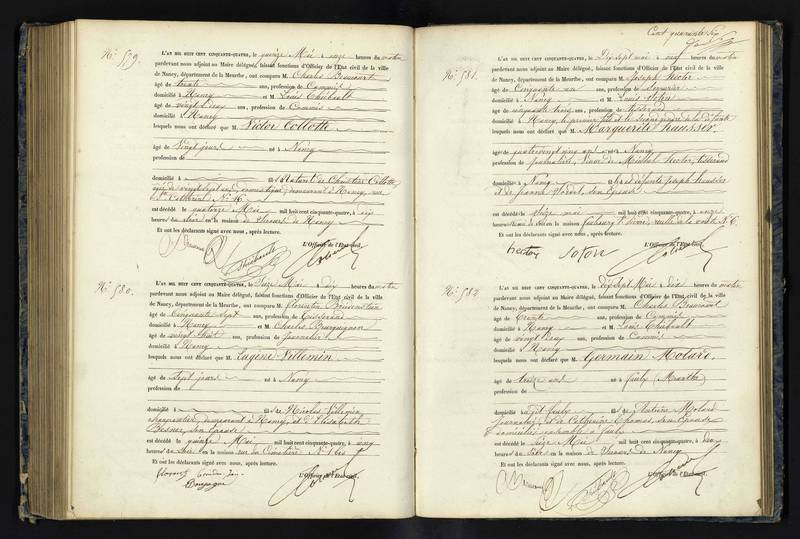 Cent quarante six
N° 579.
L'AN MIL HUIT CENT CINQUANTE-QUATRE, le quinze Mai à onze heures du matin
pardevant nous adjoint au Maire délégué, faisant fonctions d'Officier de l'Etat civil de la ville
de Nancy, département de la Meurthe, ont comparu M. Charles
âgé de trente ans, profession de Commis
domicilié à Nancy et M. Louis Thiébault
âgé de vingt deux ans, profession de Commis
domicilié à Nancy
lesquels nous ont déclaré que M. Victor Collotte
âgé de vingt jours né à Nancy
profession de
domicilié à fils Naturel de Christine Collotte,
âgée de vingt sept ans, domestique, demeurant à Nancy, rue
Ste Catherine N° 16
est décédé le quatorze Mai mil huit cent cinquante-quatre, à dix
heures du soir en la maison de Secours de Nancy
Et ont les déclarants signé avec nous, après lecture.
L'Officier de l'Etat civil.
Thiébault
N° 580.
L'AN MIL HUIT CENT CINQUANTE-QUATRE, le Seize Mai à dix heures du matin
pardevant nous adjoint au Maire délégué, faisant fonctions d'Officier de l'Etat civil de la ville
de Nancy, département de la Meurthe, ont comparu M. Florentin
âgé de Cinquante sept ans, profession de Tisserand
domicilié à Nancy et M. Charles Bourguignon
âgé de vingt huit ans, profession de Journalier
domicilié à Nancy
lesquels nous ont déclaré que M. Eugène Villemin
âgé de Sept jours né à Nancy
profession de
domicilié à fils de Nicolas Villemin,
Charpentier, demeurant à Nancy, et d'Elisabeth
son épouse
est décédé le quinze Mai mil huit cent cinquante-quatre, à cinq
heures du Soir en la maison rue du Cimetière N° 1 bis
Et ont les déclarants signé avec nous, après lecture.
L'Officier de l'Etat civil.
N° 581.
L'AN MIL HUIT CENT CINQUANTE-QUATRE, le Dix sept mai à neuf heures du matin
pardevant nous adjoint au Maire délégué, faisant fonctions d'Officier de l'Etat civil de la ville
de Nancy, département de la Meurthe, ont comparu M. Joseph
âgé de Cinquante un ans, profession de Serrurier
domicilié à Nancy et M. Louis Soton
âgé de cinquante ans, profession de
domicilié à Nancy, le premier fils et le second gendre de la défunte
lesquels nous ont déclaré que M. Marguerite Hausser
âgé de quatre vingt cinq ans né à Nancy
profession de journalière, Veuve de Michel Tisserand
domicilié à Nancy fille de défunts Joseph Hausser
et de Jeanne son épouse
est décédé le Seize mai mil huit cent cinquante-quatre, à onze
heures du soir en la maison faubourg St Pierre, ruelle de la N° 6
Et ont les déclarants signé avec nous, après lecture.
L'Officier de l'Etat civil.
SOTON
N° 582.
L'AN MIL HUIT CENT CINQUANTE-QUATRE, le Dix Sept Mai à dix heures du matin
pardevant nous adjoint au Maire délégué, faisant fonctions d'Officier de l'Etat civil de la ville
de Nancy, département de la Meurthe, ont comparu M. Charles
âgé de Trente ans, profession de Commis
domicilié à Nancy et M. Louis Thiébault
âgé de vingt deux ans, profession de Commis
domicilié à Nancy
lesquels nous ont déclaré que M. Germain Molard.
âgé de treize ans né à Pully (Meurthe)
profession de
domicilié au dit Pully fils de Antoine Molard
journalier, et de Catherine Thomas, son épouse
domiciliés ensemble à Pully
est décédé le Seize Mai mil huit cent cinquante-quatre, à
heures du Soir en la maison de Secours de Nancy
Et ont les déclarants signé avec nous, après lecture.
L'Officier de l'Etat civil.
Thiébault